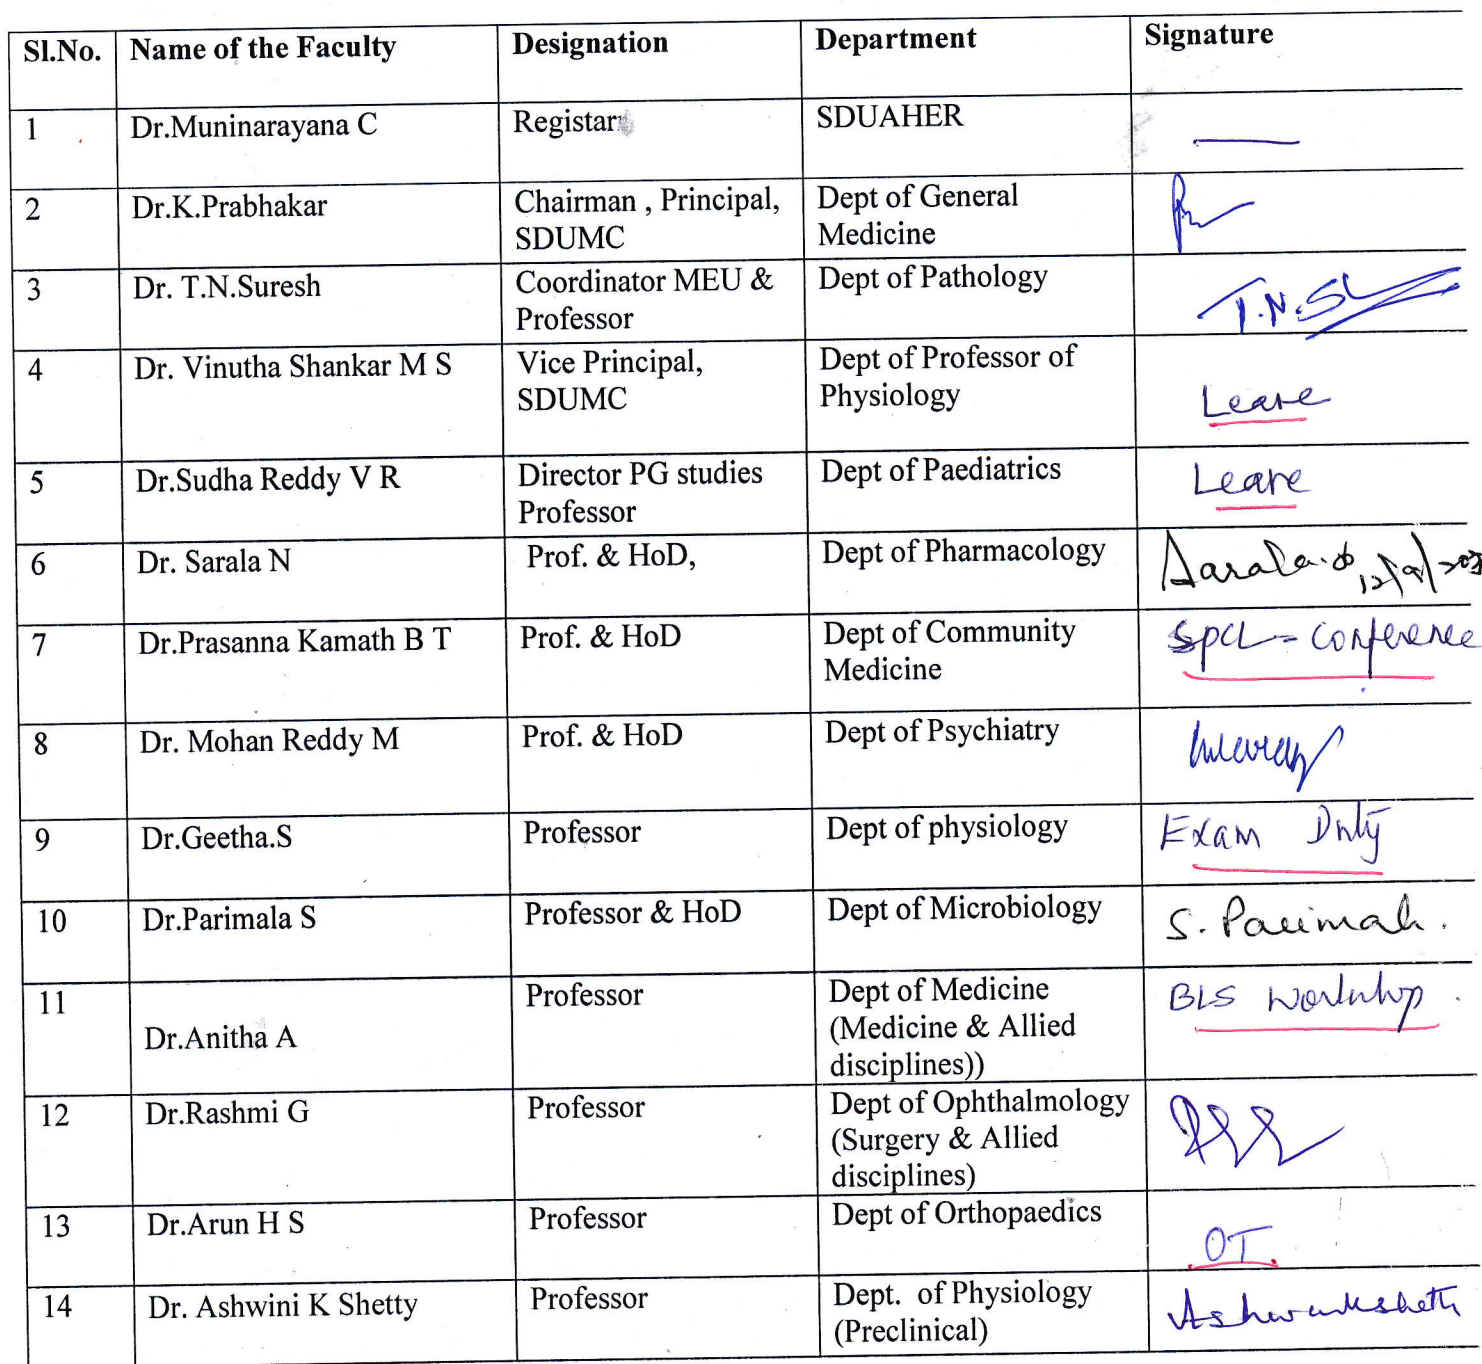 Sl.No. Name of the Faculty Designation Department Signature
1 Dr.Muninarayana C Registar SDUAHER
2 Dr.K.Prabhakar Chairman , Principal, Dept of General
SDUMC Medicine
3 Dr. T.N.Suresh Coordinator MEU & Dept of Pathology
Professor T.N.S
4 Dr. Vinutha Shankar M S Vice Principal, Dept of Professor of
SDUMC Physiology Leave
5 Dr.Sudha Reddy V R Director PG studies Dept of Paediatrics Leave
Professor
6 Dr. Sarala N Prof. & HoD, Dept of Pharmacology Sarala
7 Dr.Prasanna Kamath B T Prof. & HoD Dept of Community SpCL - Conference
Medicine
8 Dr. Mohan Reddy M Prof. & HoD Dept of Psychiatry
9 Dr.Geetha.S Professor Dept of physiology Exam Duty
10 Dr.Parimala S Professor & HoD Dept of Microbiology S. Parimala.
11 Professor Dept of Medicine BLS Workshop.
Dr.Anitha A (Medicine & Allied
disciplines))
12 Dr.Rashmi G Professor Dept of Ophthalmology
(Surgery & Allied
disciplines)
13 Dr.Arun H S Professor Dept of Orthopaedics
OT.
14 Dr. Ashwini K Shetty Professor Dept. of Physiology
(Preclinical)